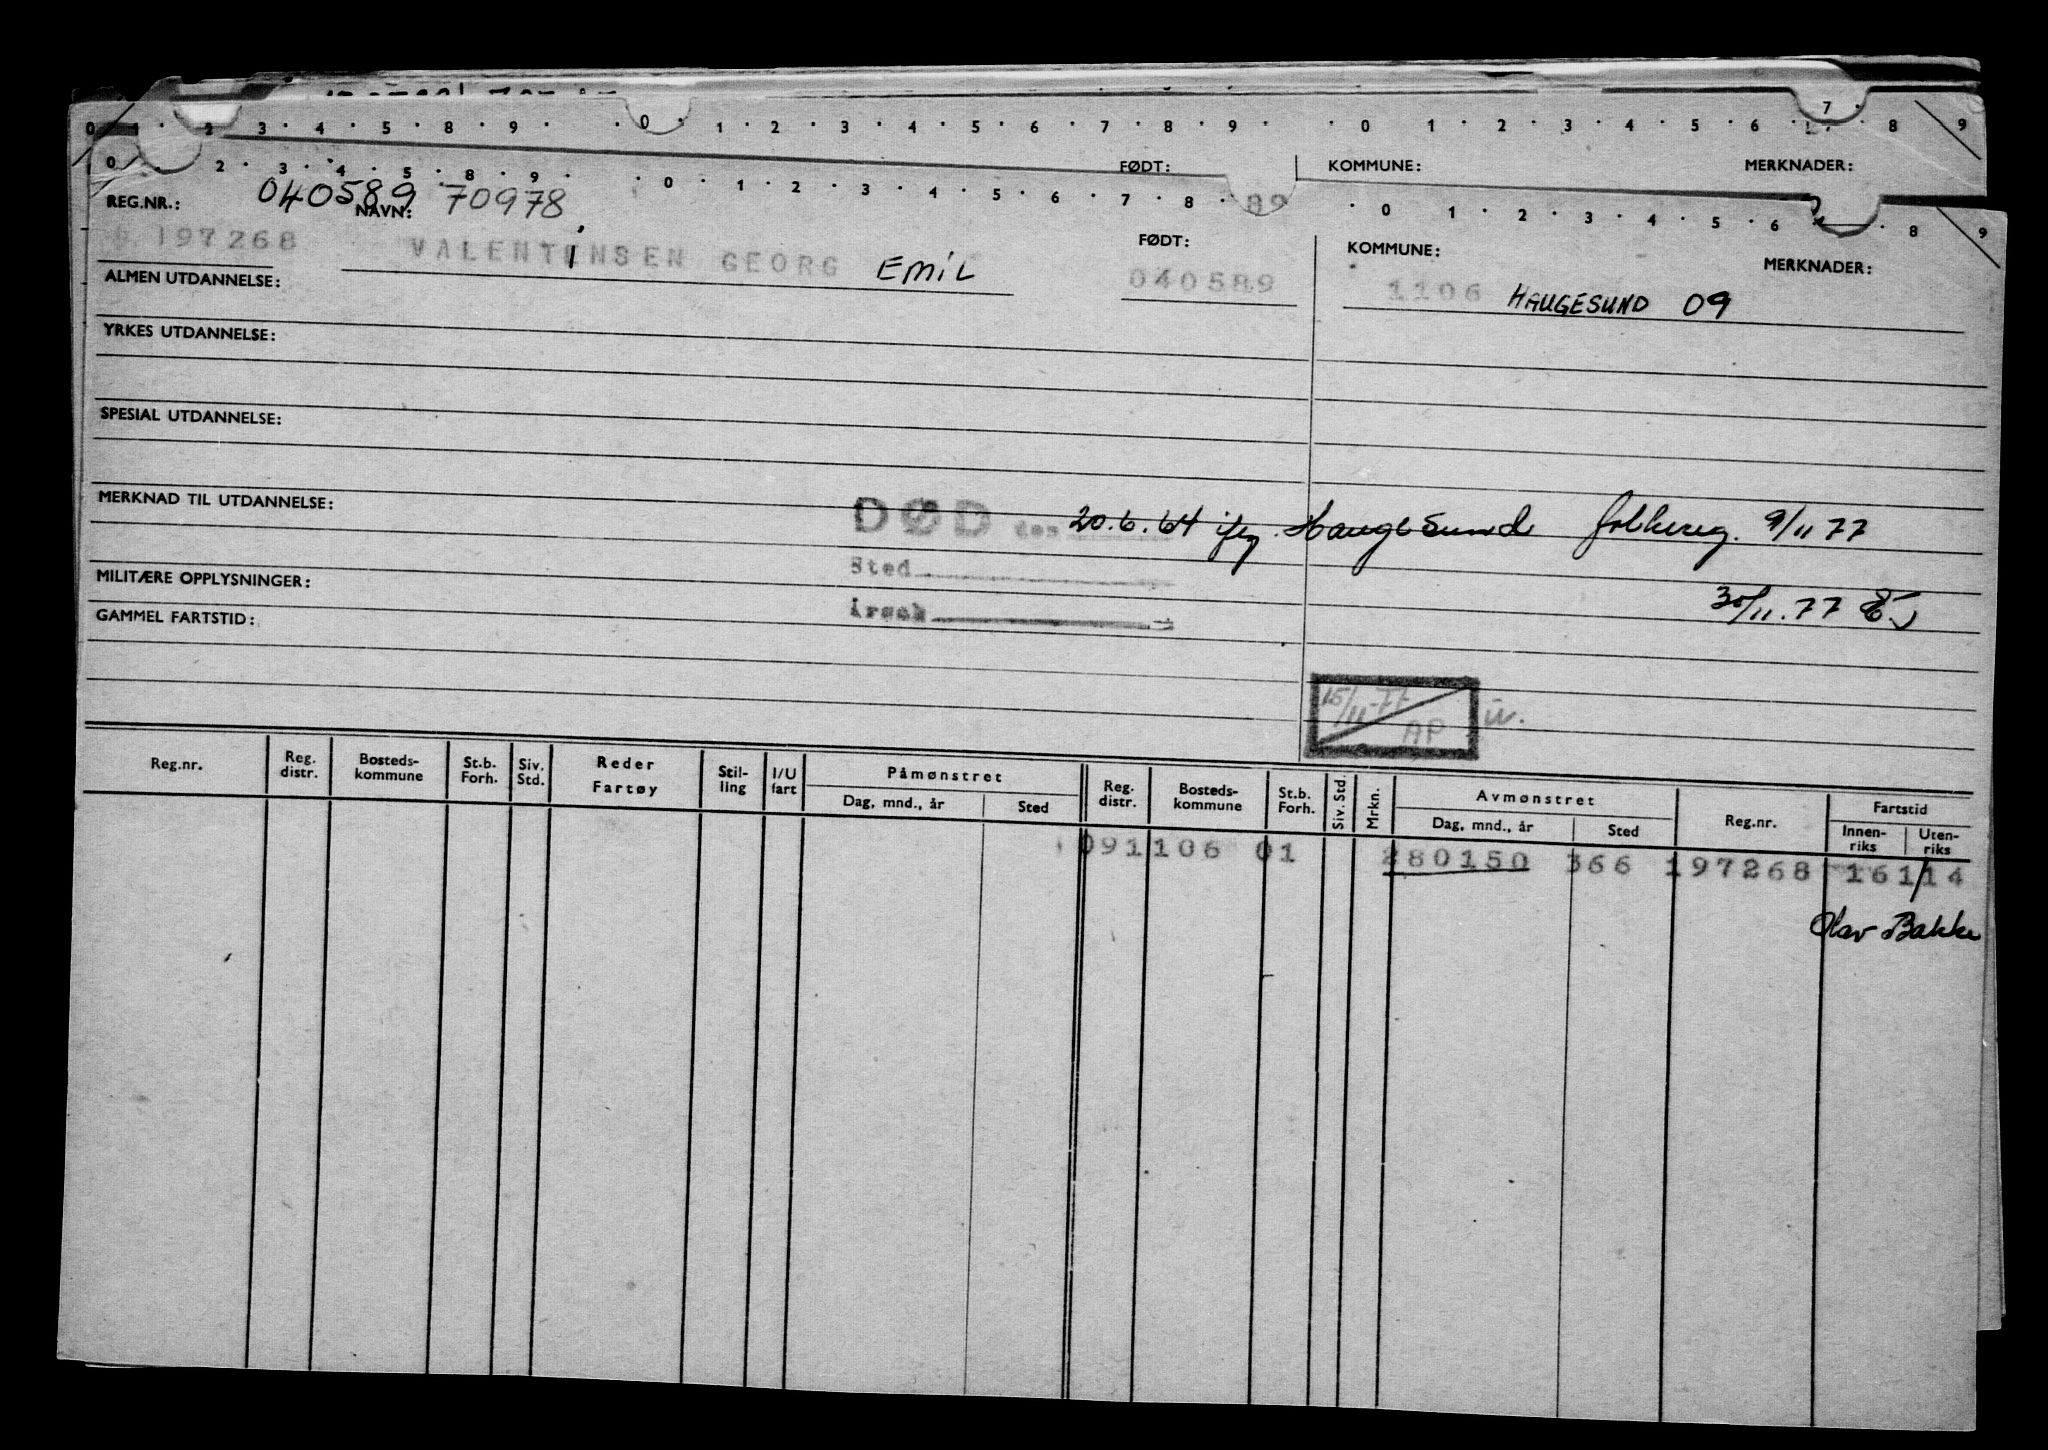 0 1 · 2 3 · 4 · 5 · 8 · 9 · · 0 · 1 · 2 · 3 · 4 · 5 · 6 · 7 · 8 · 9 · · 0 · 1 · 2 · 3 · 4 · 5 · 6 · 7 · 8 9
FØDT: KOMMUNE: MERKNADER:
0 2 · 3 · 4 · 5 · 8 · 9 · · 0 · 1 · 2 · 3 · 4 · 5 · 6 · 7 · 8 · 89 · 0 1 · 2 · 3 · 4 · 5 · 6 · 8 · 9
REG.NR.: 040589 NAVN: 70978
197268 VALENTINSEN GEORG EMIL FØDT: 040589 KOMMUNE: 1106 HAUGESUND 09 MERKNADER:
ALMEN UTDANNELSE:
YRKES UTDANNELSE:
SPESIAL UTDANNELSE:
MERKNAD TIL UTDANNELSE:
DØD den 20.6.64 ifg. Haugesund folkereg. 9/11 77
Sted
MILITÆRE OPPLYSNINGER: 30/11.77
Årsak
GAMMEL FARTSTID:
15/11-77 AP
Reg.nr. Reg. distr. Bosteds-kommune St.b. Forh. Siv. Std. Reder Fartøy Stil-ling I/U fart Påmønstret Dag, mnd., år Sted Reg. distr. Bosteds-kommune St.b. Forh. Siv. Std. Mrkn. Avmønstret Dag, mnd., år Sted Reg.nr. Fartstid Innen-riks Uten-riks
091106 01 280150 366 197268 161/14
Olav Bakke